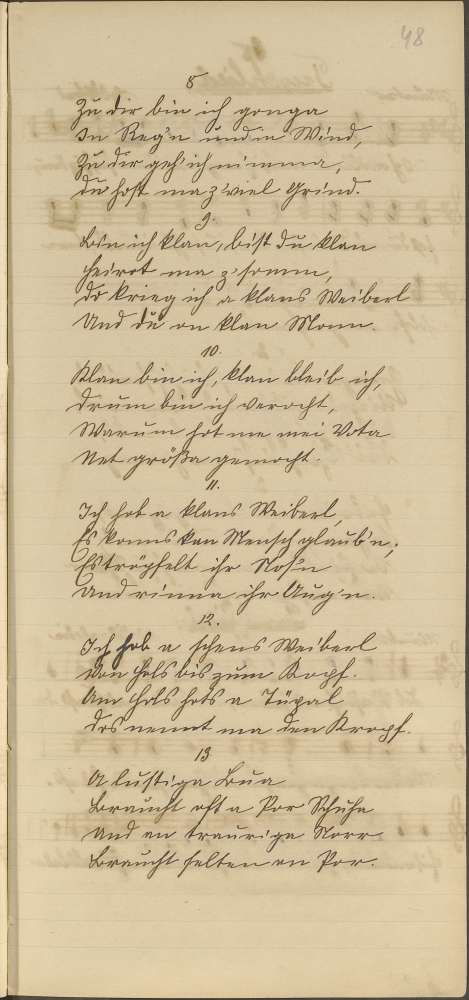 48
8
Zu dir bin ich gonga
In Reg'n und in Wind,
Zu dir geh' ich nimma,
Du host ma z'viel Grind.
9.
Bin ich klan, bist du klan
Heirot ma z'somm,
Do krieg ich a klans Weiberl
Und du an klan Monn.
10.
Klan bin ich, klan bleib ich,
Drum bin ich verocht,
Warum hot me mei Vota
Net größa gemocht.
11.
Ich hob a klans Weiberl,
Es konns kan Mensch glaub'n;
Es tröpfelt ihr Nos'n
Und rinna ihr Aug'n.
12.
Ich hob a schens Weiberl
Von Hols bis zum Kopf.
Am Hols hots a Tüpal
Des nennt ma den Kropf.
13
A lustiga Bua
Braucht oft a Por Schuha
Und an trauriga Norr
Braucht selten an Por.